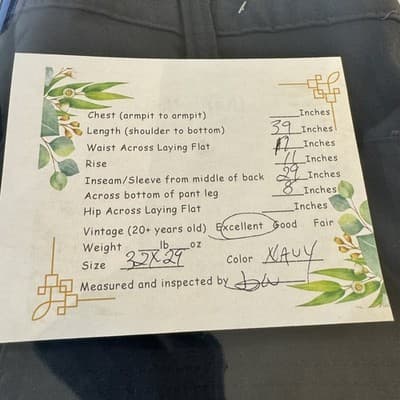 Chest (armpit to armpit) ____Inches
Length (shoulder to bottom) 39 Inches
Waist Across Laying Flat 17 Inches
Rise 11 Inches
Inseam/Sleeve from middle of back 29 Inches
Across bottom of pant leg 8 Inches
Hip Across Laying Flat ____Inches
Vintage (20+ years old) Excellent Good Fair
Weight ___lb___oz
Size 32X29 Color NAVY
Measured and inspected by